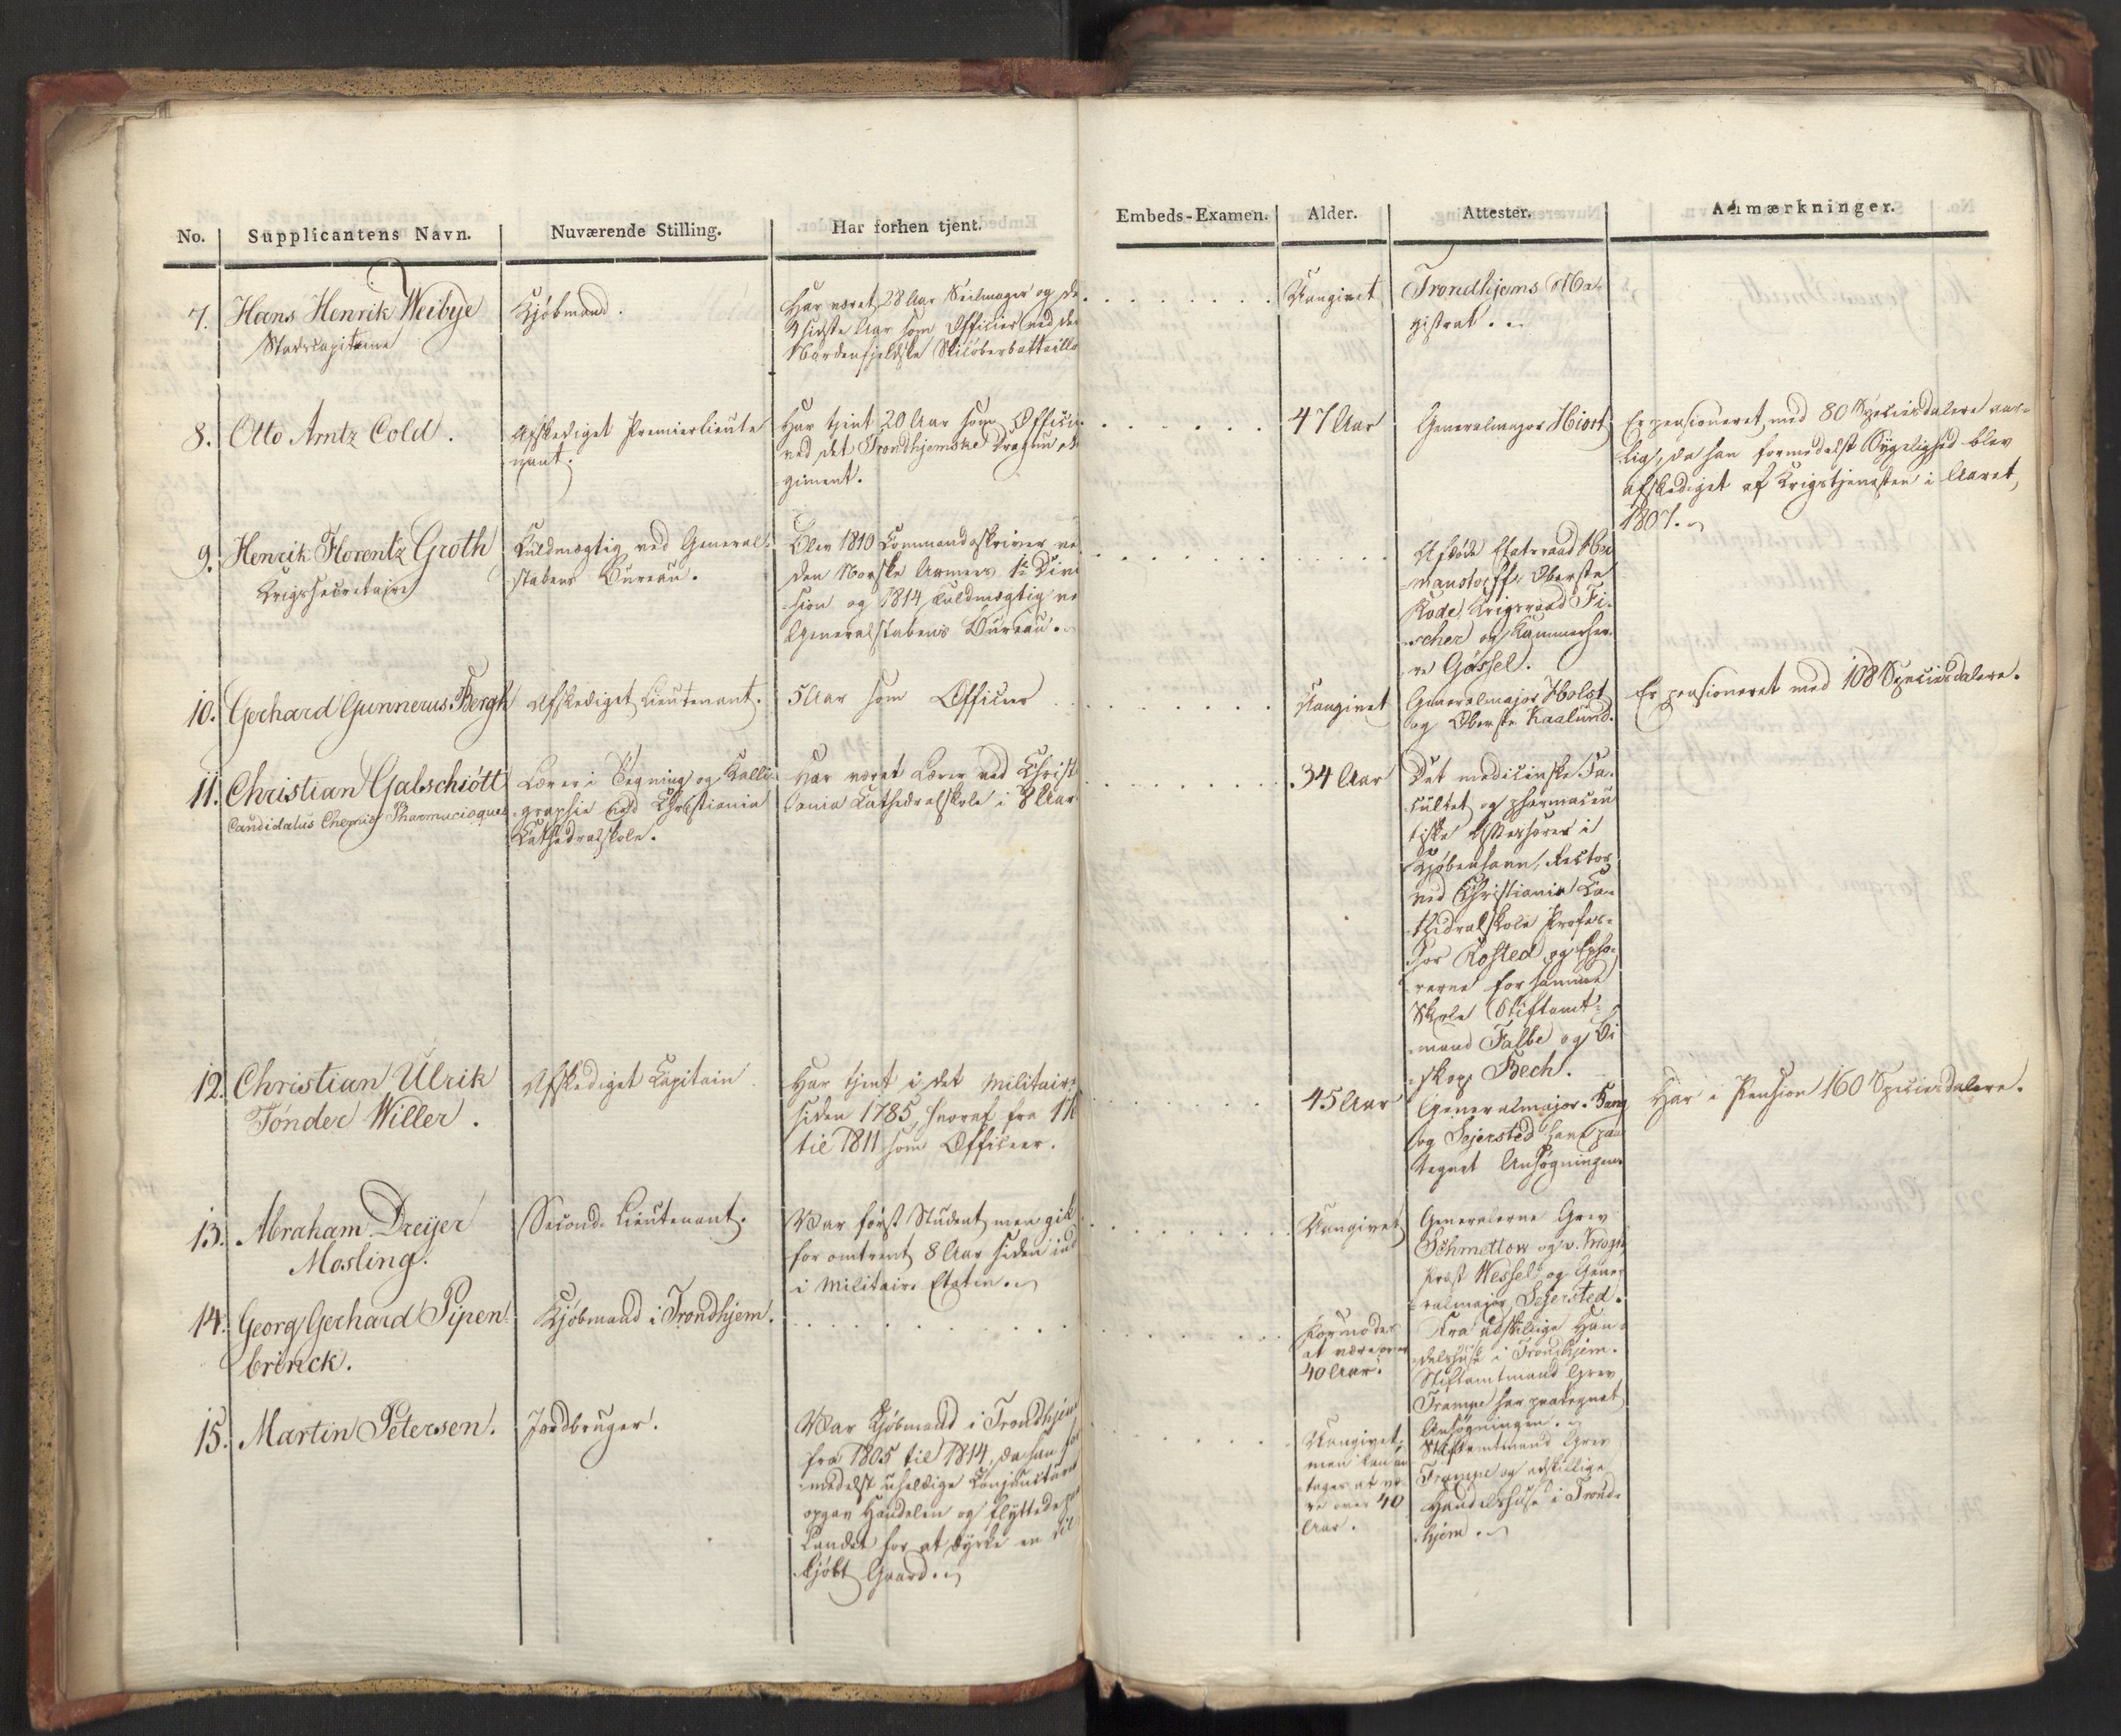 No.
Supplicantens Navn.
Nuværende Stilling.
Har forhen tjent.
Embeds-Examen.
Alder.
Attester.
Anmærkninger.
7.
Hans Henrik Weibye
Stadscapitaine
Kjøbmand.
Har været 28 Aar Seilmager og de
4 sidste Aar som Officier ved det
Nordenfjeldske Skiløberbataillo
Uangivet
Trondhjems Ma-
gistrat.
8.
Otto Arntz Cold.
Afskediget Premierlieute
nant.
Har tjent 20 Aar som Officier
ved det Trondhjemske Dragun Re
giment.
47 Aar
Generalmajor Hiort
Er pensioneret med 80 Speciesdalere aar-
lig, da han formedelst Sygelighed blev
afskediget af Krigstjenesten i Aaret
1807.
9.
Henrik Florentz Groth
Krigssecretaire
Fuldmægtig ved General-
stabens Bureau.
Blev 1810 Commandoskriver ve
den Norske Armees 1ste Divi
sion og 1814 Fuldmægtig ve
Generalstabens Bureau.
Afdøde Etatsraad Her
manstorff, Oberste
Rode, Krigsraad Fi-
scher og Kammerher-
re Gössel.
10.
Gerhard Gunnerus Bergh
Afskediget Lieutenant.
5 Aar som Officier
Uangivet
Generalmajor Holst
og Oberste Kaalund.
Er pensioneret med 108 Speciesdalere.
11.
Christian Galschiött
Candidatus Chemiæ Pharmaciæque
Lærer i Tegning og Kalli-
graphie ved Christiania
Cathedralskole.
Har været Lærer ved Christi
ania Cathedralskole i 8 Aar
34 Aar
Det medicinske Fa-
cultet og pharmaceu
tiske Assessorer i
Kjøbenhavn, Rector
ved Christiania Ca-
thedralskole Profes-
sor Rosted og Epho-
rerne for samme
Skole Stiftamt-
mand Falbe og Bi
skop Bech.
12.
Christian Ulrik
Tønder Willer.
Afskediget Capitain
Har tjent i det Militaire
siden 1785, hvoraf fra
til 1811 som Officeer.
45 Aar
Generalmajor
og Sejersted have paa
tegnet Ansøgningen
Har i Pension 160 Speciesdalere.
13.
Abraham Dreyer
Mosling.
Second-Lieutenant.
Var først Student, men gik
for omtrent 8 Aar siden ind
i Militair-Etaten.
Uangivet
Generalerne Grev
Schmettow og v. Krogh
Præst Wessel og Gene-
ralmajor Sejersted.
14.
Georg Gerhard Pipen-
brinck.
Kjøbmand i Trondhjem.
Formodes
at være over
40 Aar.
Fra adskillige Han-
delshuse i Trondhjem.
Stiftamtmand Grev
Trampe har paategnet
Ansøgningen.
15.
Martin Petersen.
Jordbruger.
Var Kjøbmand i Trondhjem
fra 1805 til 1814, da han for
medelst uheldige Conjuncturer
opgav Handelen og flyttede paa
Landet for at dyrke en til
kjøbt Gaard.
Uangivet,
men kan an
tages at væ-
re over 40
Aar.
Stiftamtmand Grev
Trampe og adskillige
Handelshuse i Trond-
hjem.